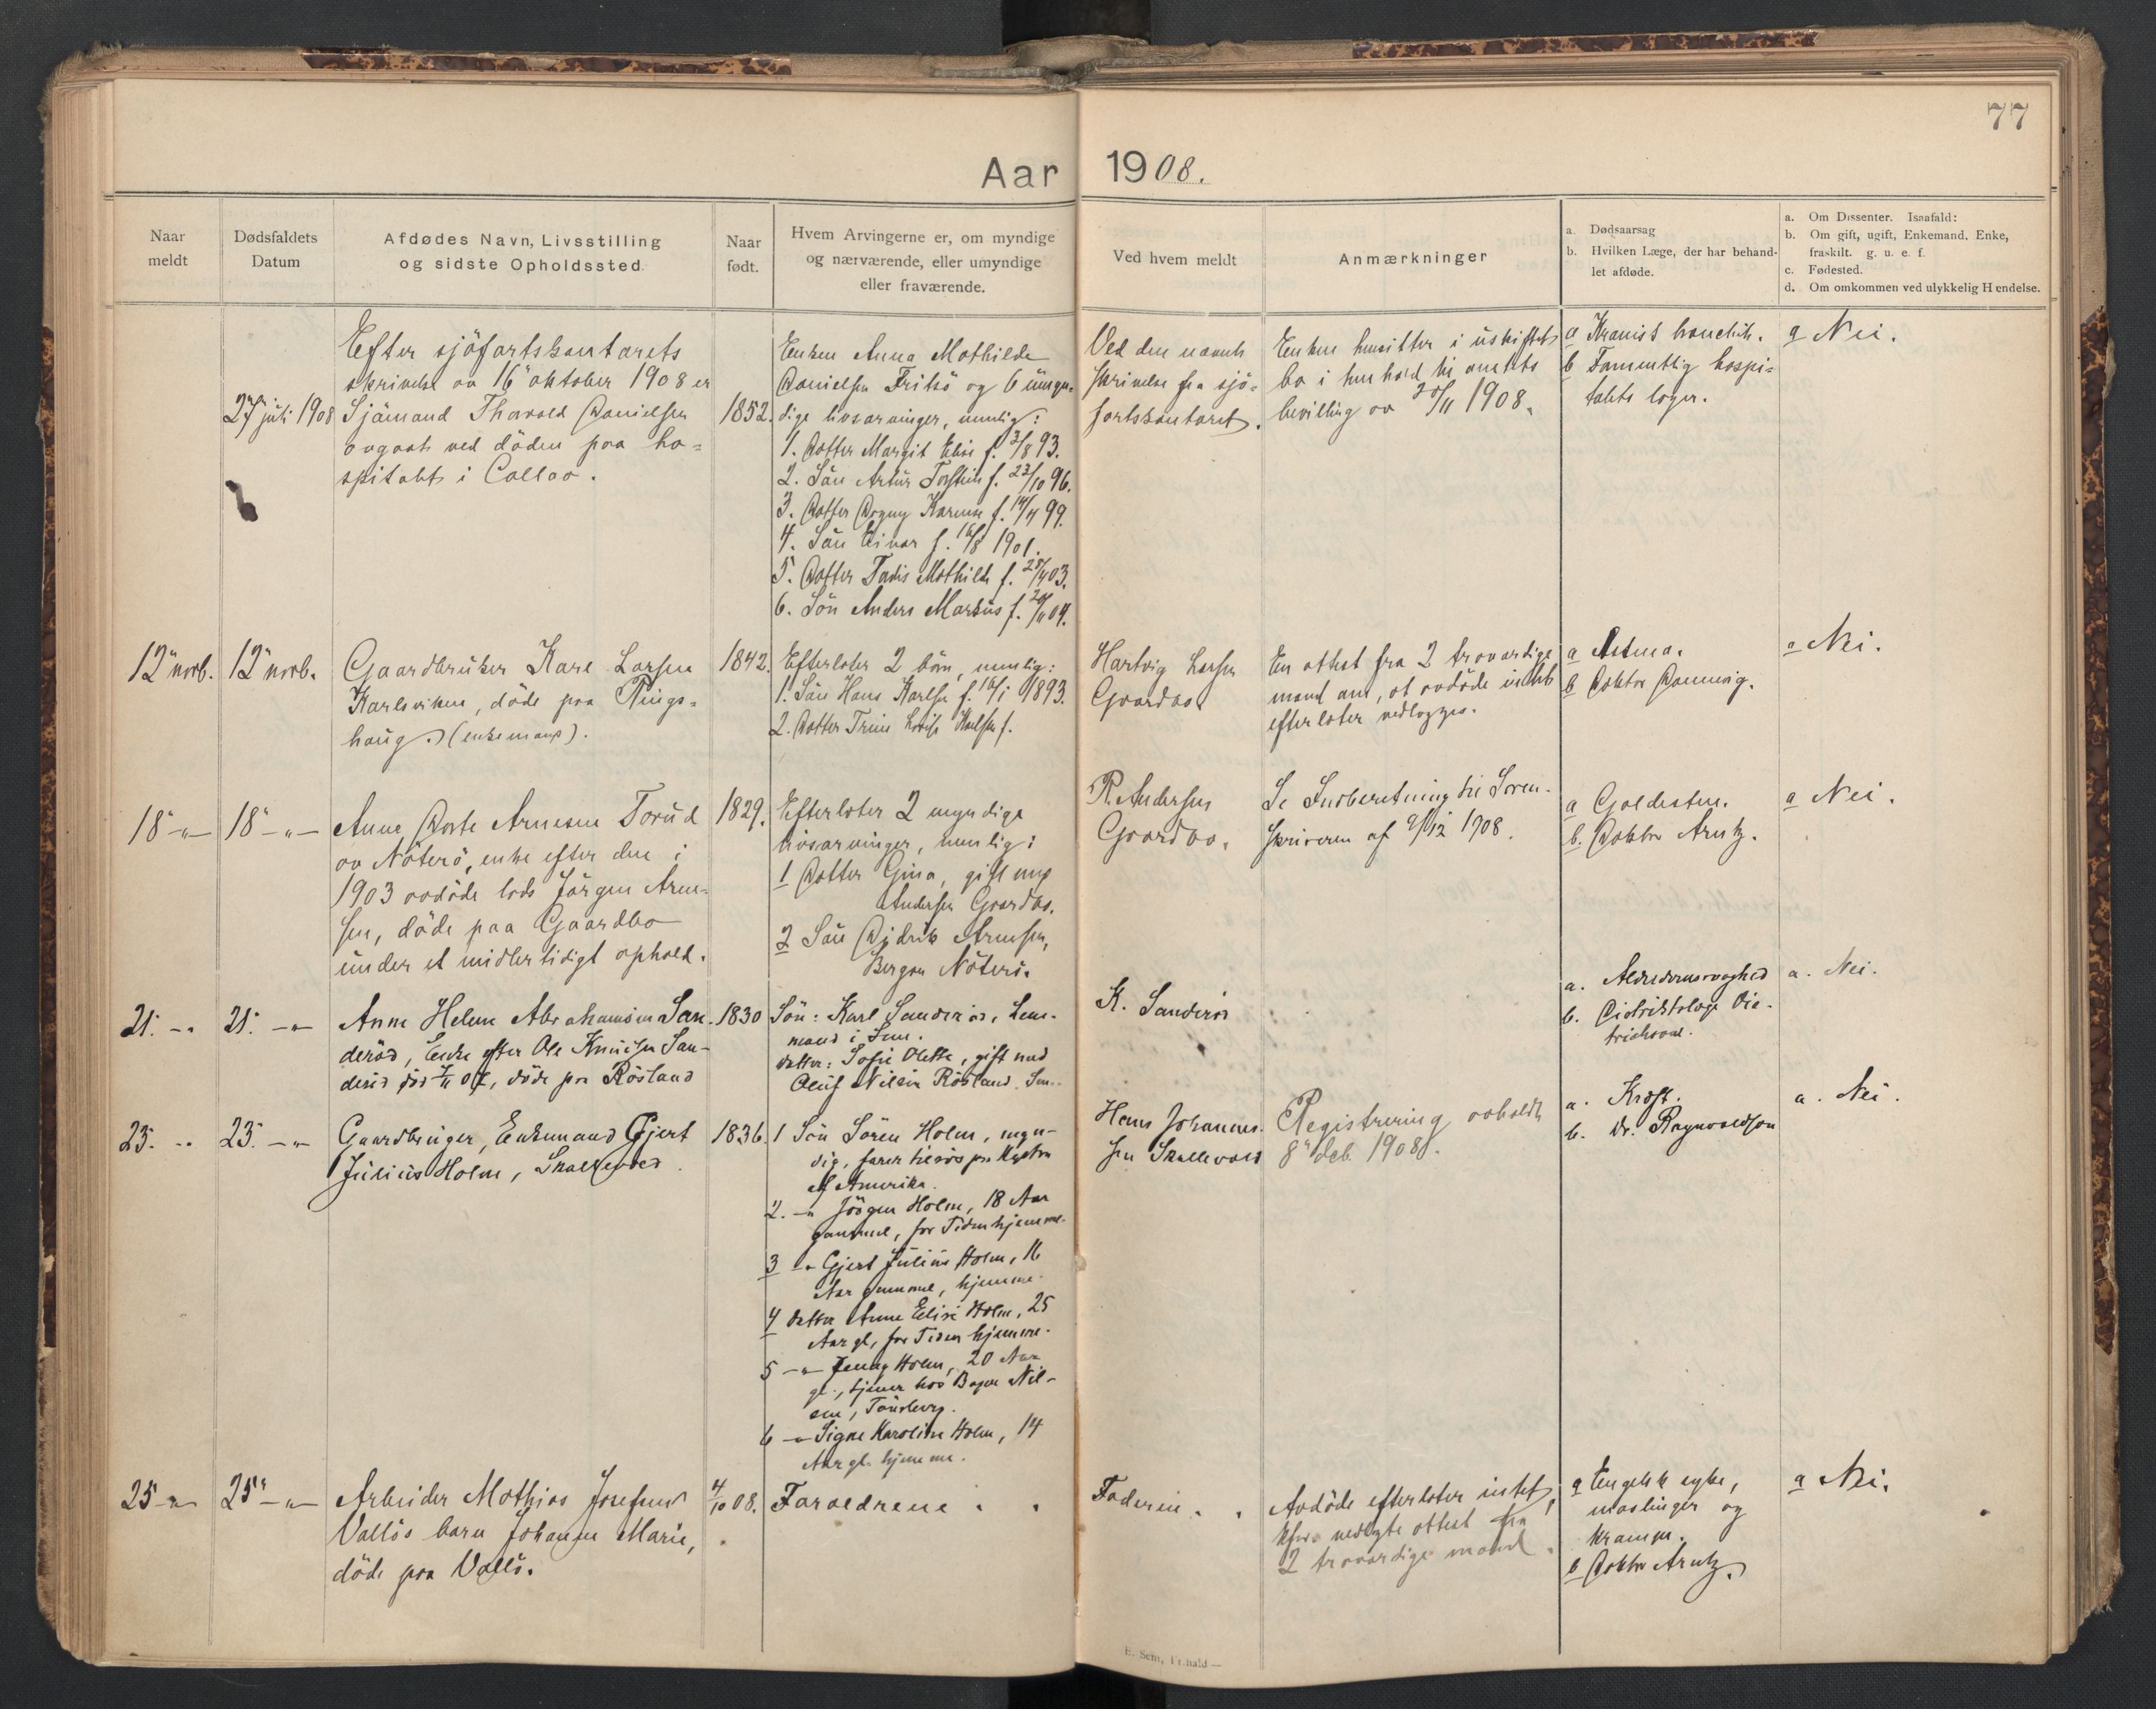 77
Aar 1908.
Naar meldt
Dødsfaldets Datum
Afdødes Navn, Livsstilling og sidste Opholdssted
Naar født.
Hvem Arvingerne er, om myndige og nærværende, eller umyndige eller fraværende.
Ved hvem meldt
Anmærkninger
a. Dødsaarsag
b. Hvilken Læge, der har behandlet afdøde.
a. Om Dissenter. Isaafald:
b. Om gift, ugift, Enkemand, Enke, fraskilt. g. u. e. f.
c. Fødested.
d. Om omkommen ved ulykkelig Hændelse.
27 juli 1908
Efter sjöfartskontorets
skrivelse av 16 oktober 1908 er
Sjömand Thorvald Danielsen
avgaat ved döden paa ho=
spitalet i Callao.
1852.
Enken Anna Mathilde
Danielsen Fritsö og 6 umyn=
dige livsarvinger, nemlig:
1. Datter Margit Elise f. 3/8 93.
2. Sön Artur Torstein f. 23/10 96.
3. Datter Dagny Karine f. 14/4 99.
4. Sön Einar f. 16/8 1901.
5. Datter Mathilde f. 28/4 03.
6. Sön Anders Markus f. 20/11 04.
Ved den nævnte
skrivelse fra sjö=
fartskontoret.
Enken hensitter i uskiftet
bo i henhold til amtets
bevilling av 28/11 1908.
a Kronisk bronchit.
b hospi=
talets læge.
a Nei.
12 novb.
12 novb.
Gaardbruker Karl Larsen
Karlsviken, döde paa Rings=
haug. (enkemand).
1842.
Efterlater 2 börn, nemlig:
1. Sön Hans Karlsen f. 16/1 1893.
2. Datter Trine Lovise Karlsen f.
Hartvig Larsen
Gaardbo
En attest fra 2 troværdige
mænd om, at avdöde intet
efterlater vedlægges.
a Astma.
b Doktor Rönnevig.
a Nei.
18 -"-
18 -"-
Anne Dorte Arnesen Torüd
av Nöterö, enke efter den i
1903 avdöde lods Jörgen Arne=
sen, döde paa Gaardbo
under et midlertidigt ophold.
1829.
Efterlater 2 myndige
livsarvinger, nemlig:
1 Datter Gina, gift med
Andersen Gaardbo.
2 Sön Didrik Arnesen,
Bergan Nöterö.
R. Andersen
Gaardbo.
Se Indberetning til Soren-
skriveren af 9/12 1908.
a Galdesten.
b. Doktor Arntz.
a Nei.
21. -"
21. -"-
Anne Helene Abrahamsen San-
deröd, Enke efter Ole Knudsen San-
deröd död, döde paa Rösland
1830
Sön: Karl Sanderöd, Lens-
mand i Sem.
Datter: Sofie Olette, gift med
Oluf Nilsen Rösland. Sem.
K. Sanderöd
a. Alderdomssvaghed
b. Distriktslæge Die-
trichson.
a. Nei.
23. -"
23. -"-
Gaardbruger, Enkemand Gjert
Julius Holm, Skallevold.
1836.
1 Sön Sören Holm, myn-
dig, farer tilsös paa Kysten
af Amerika.
2. -" Jörgen Holm, 18 Aar
gammel, for Tiden hjemme.
3 -" Gjert Julius Holm, 16
Aar gammel, hjemme.
4 Datter Anne Elise Holm, 25
Aar gl., for Tiden hjemme.
5 -"- Jenny Holm, 20 Aar
gl., tjener hos Bager Nil-
sen, Tönsberg.
6 -"- Signe Karoline Holm, 14
Aar gl. hjemme.
Hans Johannes-
sen Skallevold
Registrering avholdt
8 deb. 1908.
a. Kræft.
b. Dr. Ragnvaldson
a. Nei.
25 -"-
25 -"-
Arbeider Mathias Josefsen
Vallös barn Johanne Marie,
döde paa Vallö.
4/10 08.
Forældrene.
Faderen.
Avdöde efterlater intet,
vedlagte attest fra
2 troværdige mænd.
a Engelsk syke,
mæslinger og
krampe.
b Doktor Arntz.
a Nei.
E. Sem, Fr.hald —